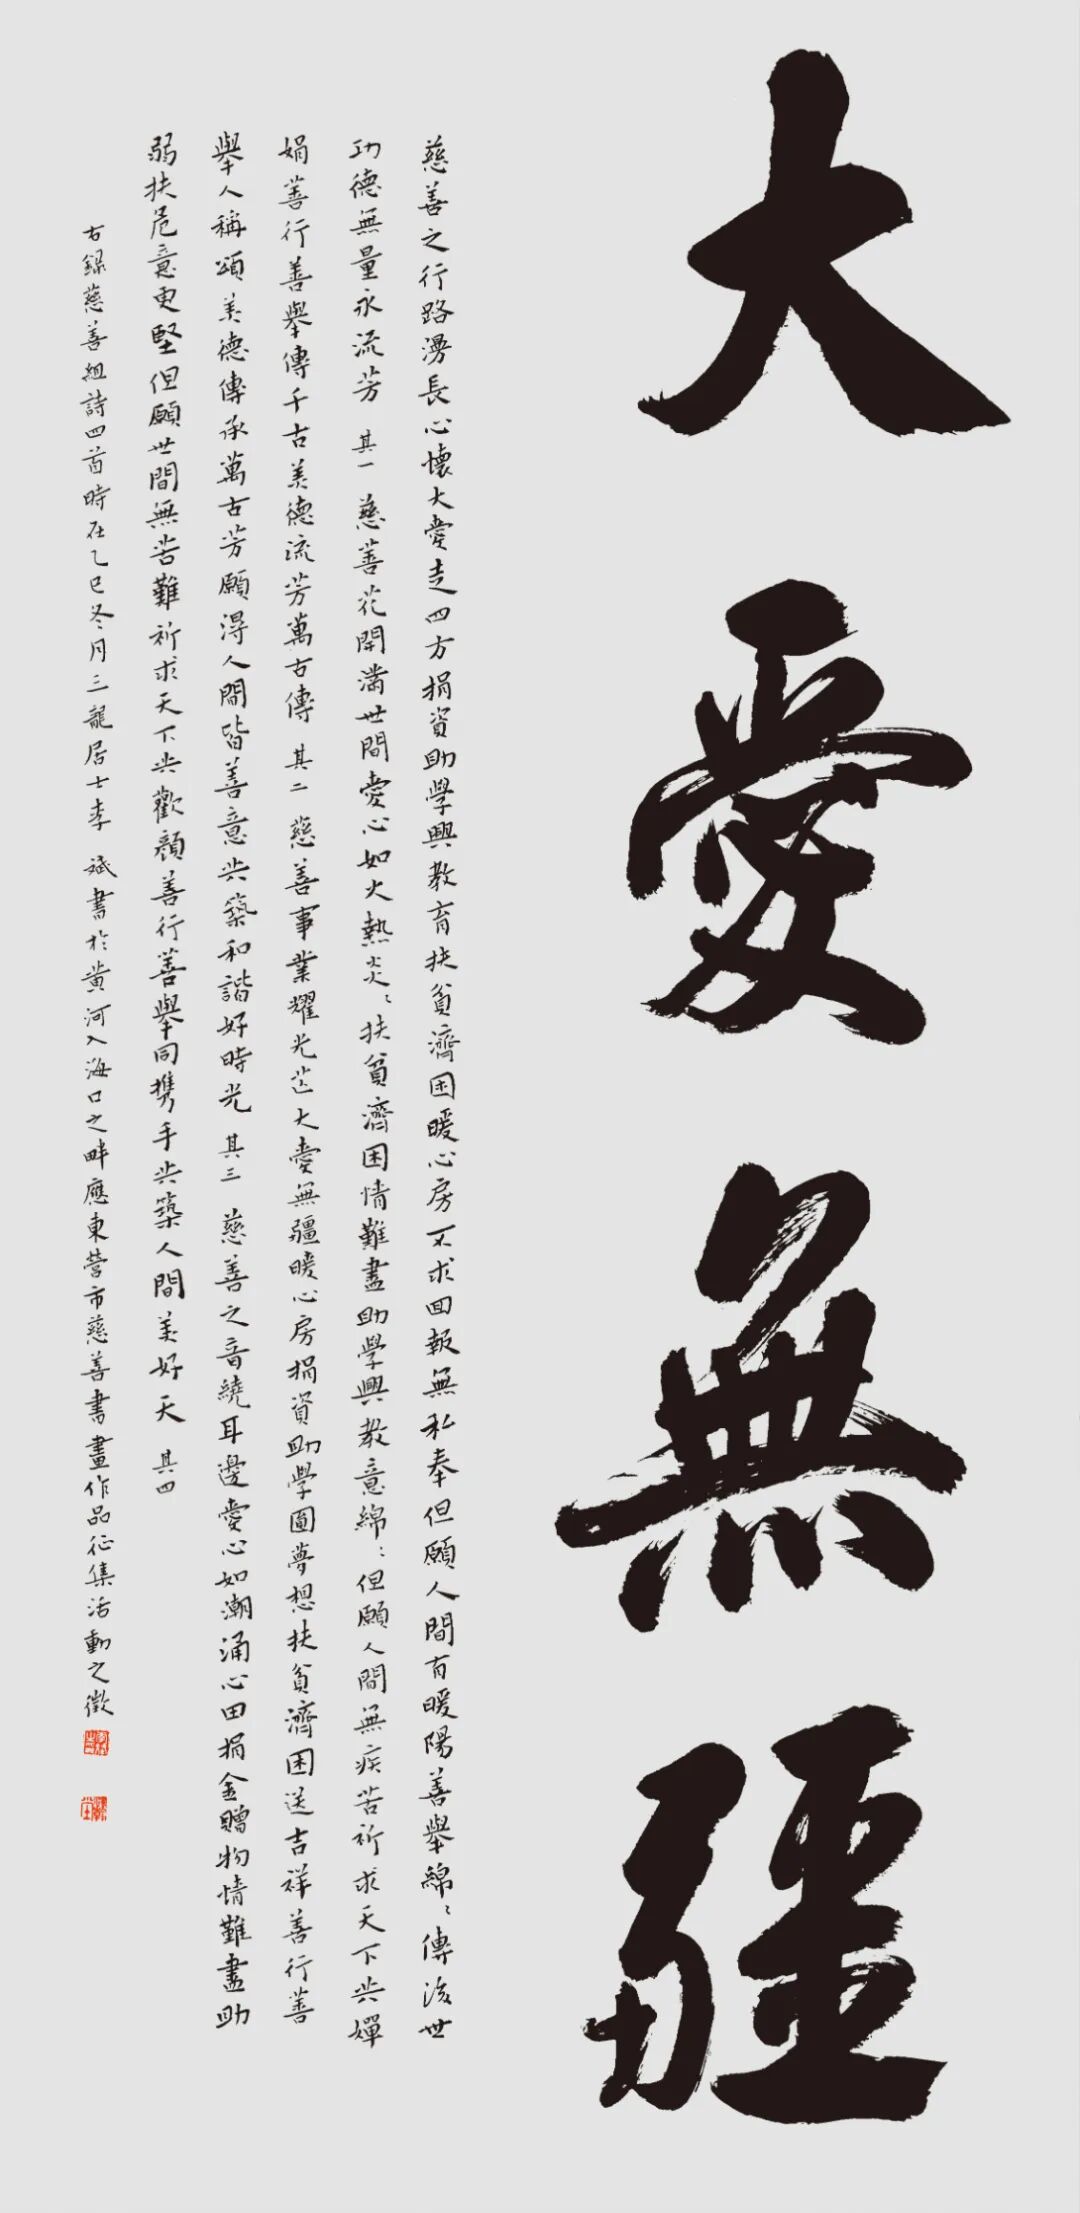 大愛無疆
慈善之行路漫長心懷大愛走四方捐資助學興教育扶貧濟困暖心房不求回報無私奉但願人間有暖陽善舉綿〻傳後世
功德無量永流芳 其一 慈善花開滿世間愛心如火熱炎〻扶貧濟困情難盡助學興教意綿〻但願人間無疾苦祈求天下共嬋
娟善行善舉傳千古美德流芳萬古傳 其二 慈善事業耀光芒大愛無疆暖心房捐資助學圓夢想扶貧濟困送吉祥善行善
舉人稱頌美德傳承萬古芳願得人間皆善意共築和諧好時光 其三 慈善之音繞耳邊愛心如潮涌心田捐金贈物情難盡助
弱扶危意更堅但願世間無苦難祈求天下共歡顏善行善舉同攜手共築人間美好天 其四
右錄慈善組詩四首時在乙巳冬月三龍居士李 斌書於黃河入海口之畔應東營市慈善書畫作品征集活動之徵